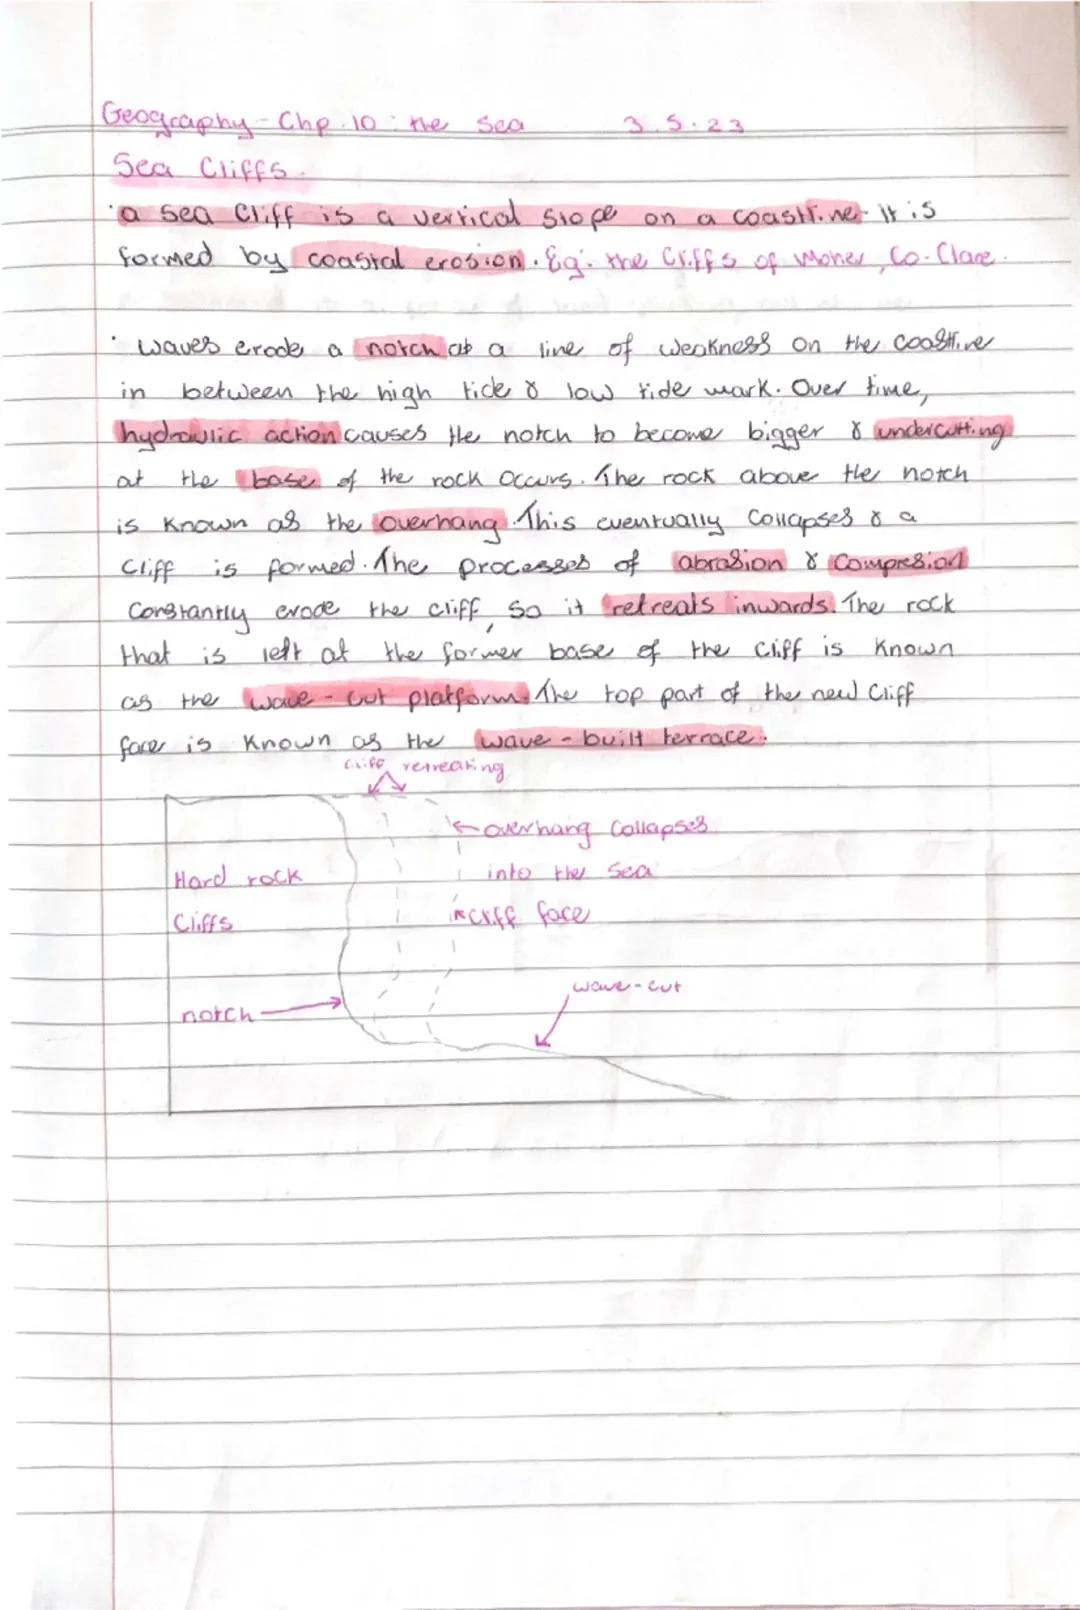 Geography - Chp. 10 : the Sea 3.5.23
Sea Cliffs.
· a sea cliff is a vertical slope on a coastline. It is
formed by coastal erosion. Eg: the Cliffs of Moher, Co. Clare.
· waves erode a notch at a line of weakness on the coastline
in between the high tide & low tide mark. Over time,
hydraulic action causes the notch to become bigger & undercutting
at the base of the rock occurs. The rock above the notch
is known as the overhang. This eventually collapses & a
cliff is formed. The processes of abrasion & compresion
constantly erode the cliff, so it retreats inwards. The rock
that is left at the former base of the cliff is known
as the wave-cut platform. The top part of the new cliff
face is known as the wave-built terrace.
cliff retreating
overhang collapses
into the sea
Hard rock
cliff face
Cliffs
wave-cut
notch